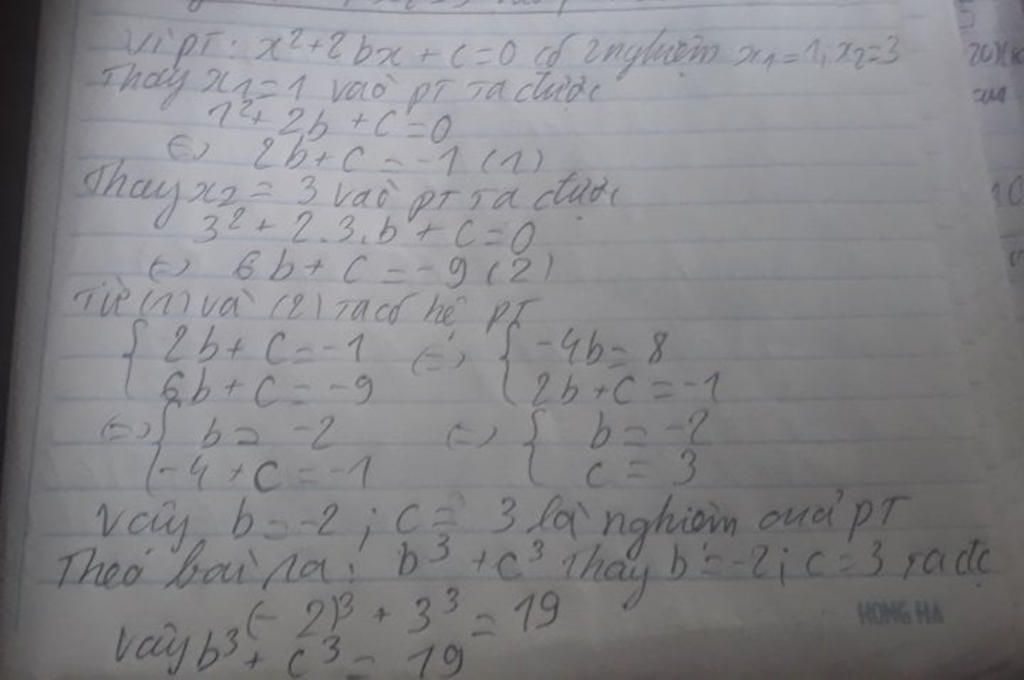 Vì PT: x²+2bx+c=0 có 2 nghiệm x₁=1, x₂=3
Thay x₁=1 vào PT Ta được
1²+2b+c=0
(=) 2b+c=-1 (1)
Thay x₂=3 vào PT Ta được
3²+2.3.b+c=0
(=) 6b+c=-9 (2)
Từ (1) và (2) Ta có hệ PT
{2b+c=-1 (=) {-4b=8
{6b+c=-9 {2b+c=-1
(=) {b=-2 (=) {b=-2
{-4+c=-1 {c=3
Vậy b=-2; c=3 là nghiệm của PT
Theo bài ra: b³+c³ Thay b=-2; c=3 ta đc
(-2)³+3³=19
Vậy b³+c³=19
HONG HA